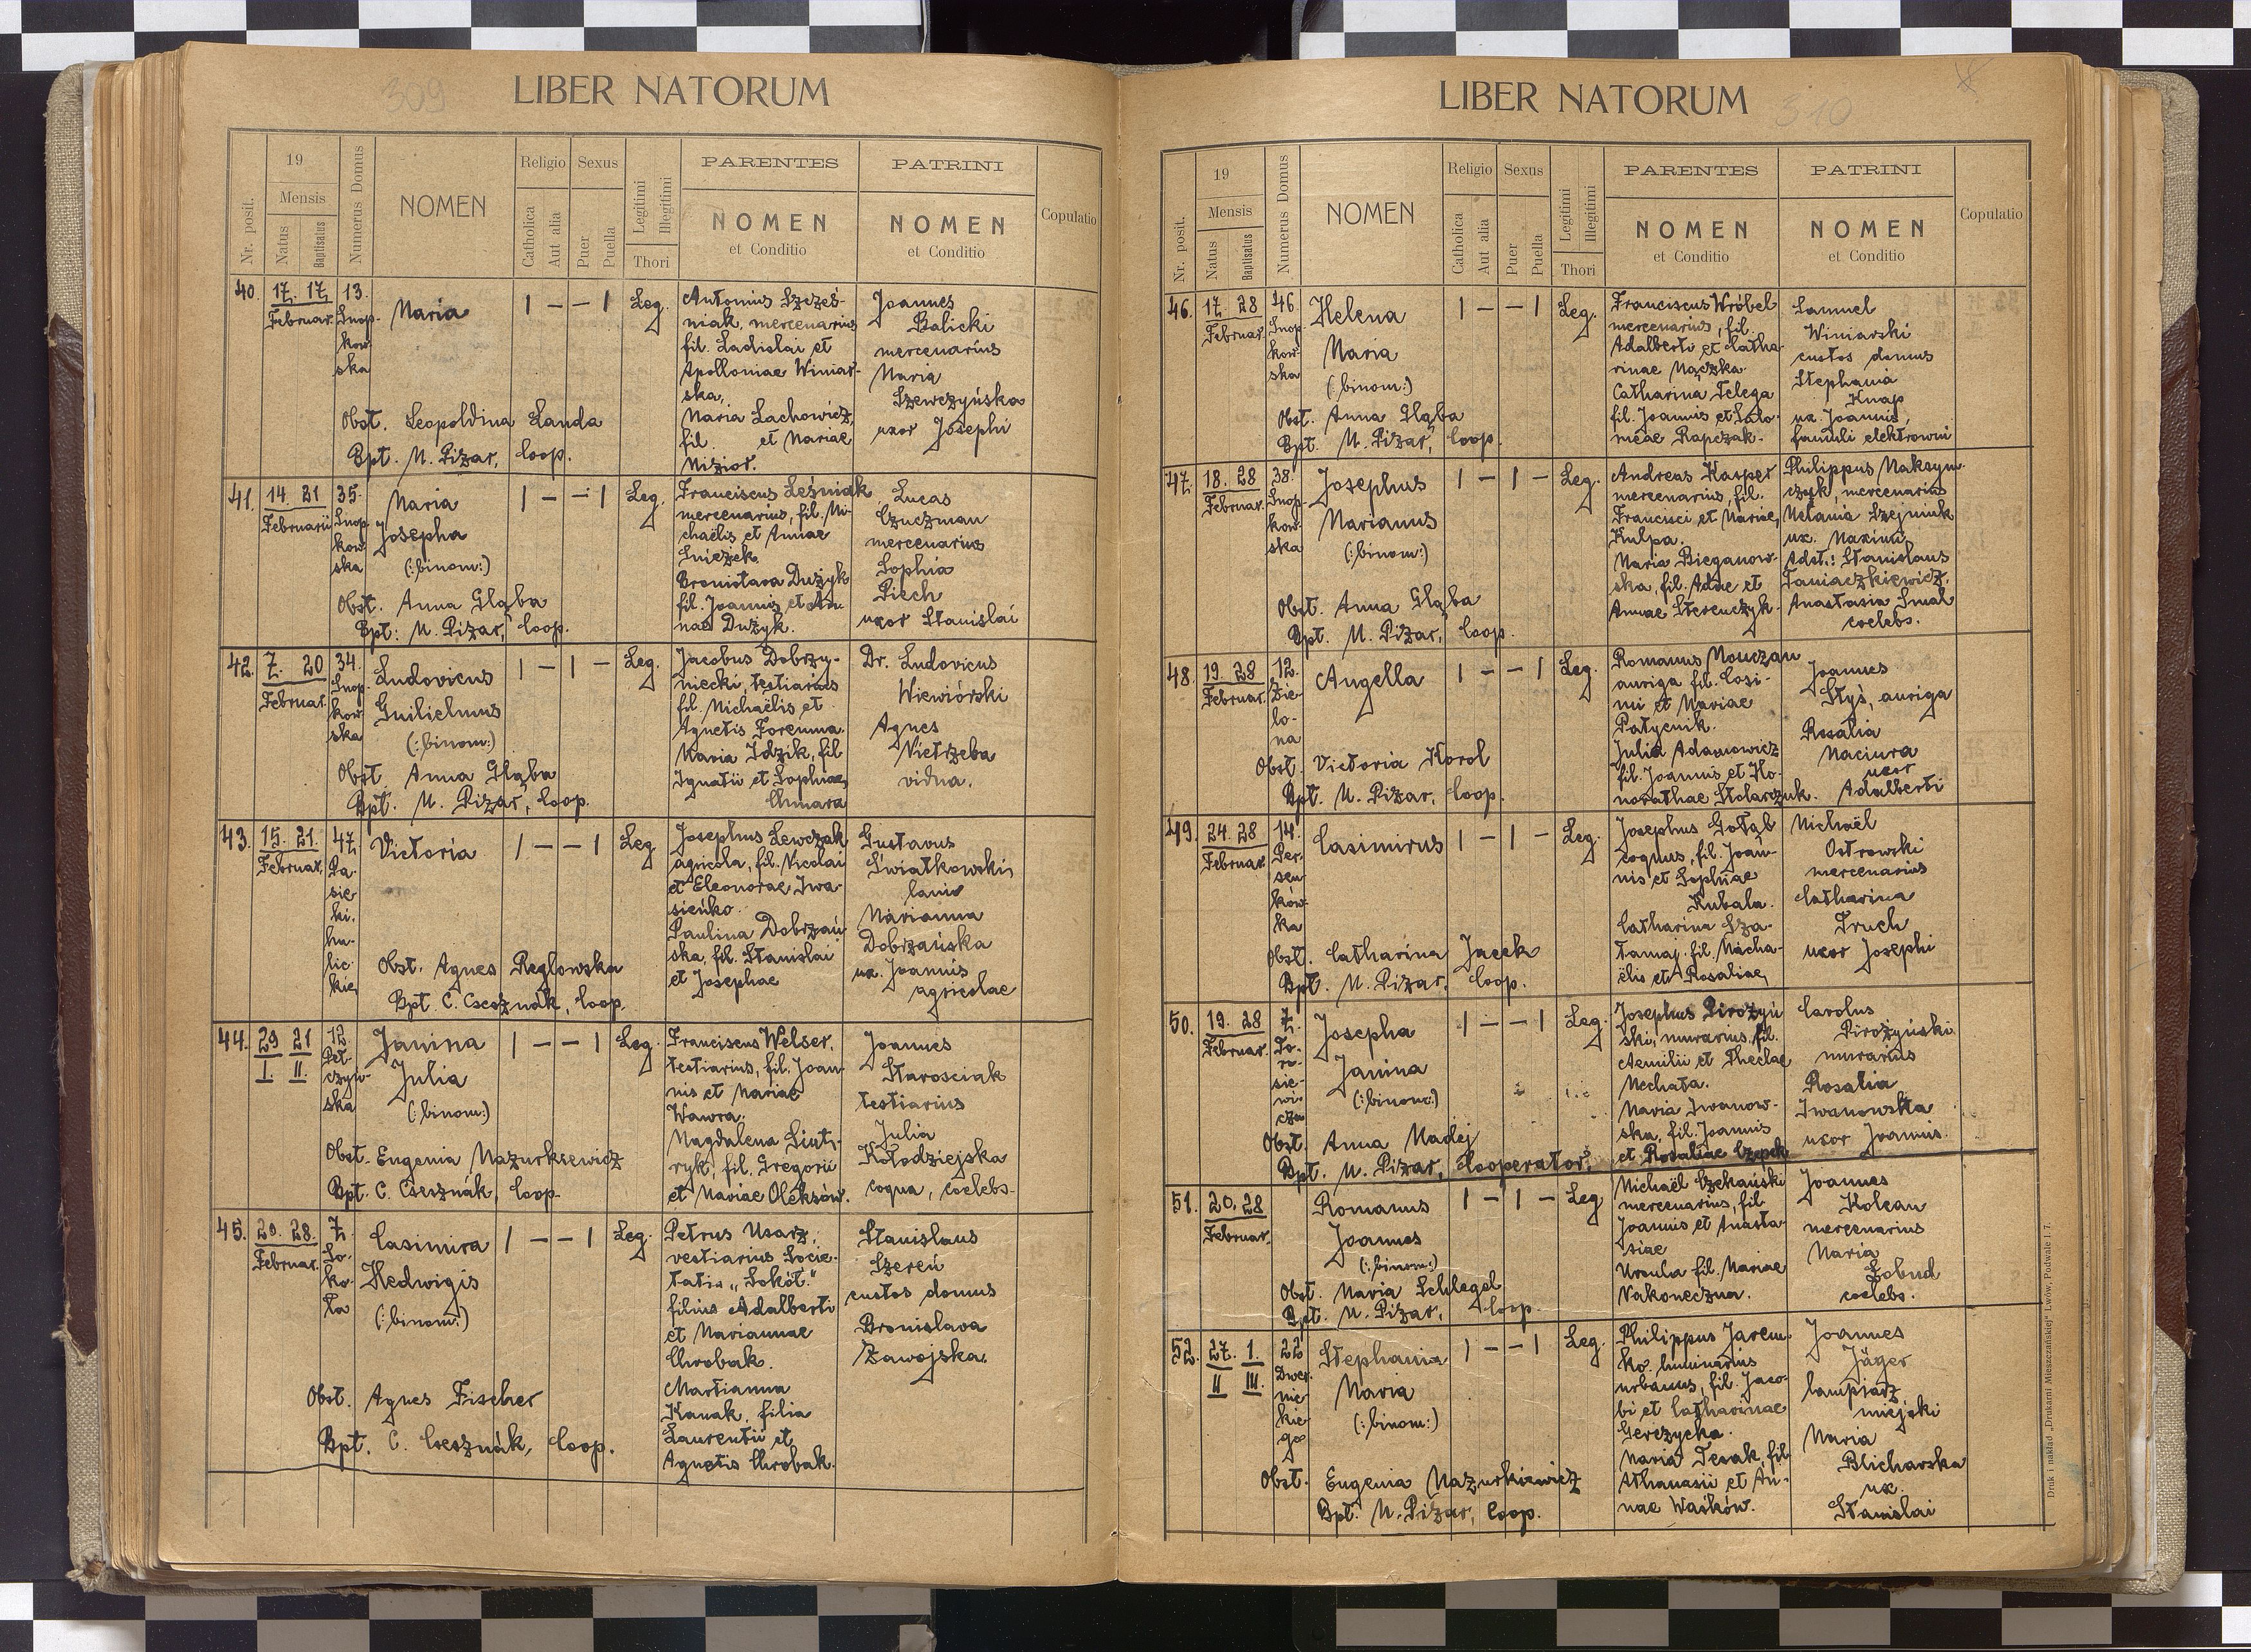 309
LIBER NATORUM
Nr. posit.
19
Mensis
Natus
Baptisatus
Numerus Domus
NOMEN
Religio
Catholica
Aut alia
Sexus
Puer
Puella
Legitimi
Illegitimi
Thori
PARENTES
NOMEN
et Conditio
PATRINI
NOMEN
et Conditio
Copulatio
40.
17. 17.
Februar.
13.
Snop-
kow-
ska
Maria
1 — — 1
Leg.
Antonius Szcześ-
niak, mercenarius
fil. Ladislai et
Apolloniae Winiar-
ska,
Maria Lachowicz,
fil. et Mariae
Nizioł.
Joannes
Balicki
mercenarius
Maria
Szewczyńska
uxor Josephi
Obst. Leopoldina Landa
Bpt. M. Pizar, Coop.
41.
14. 21
Februarii
35.
Snop-
kow-
ska
Maria
Josepha
(:binom:)
1 — — 1
Leg.
Franciscus Leśniak
mercenarius, fil. Mi-
chaëlis et Annae
Śnieżek.
Bronislava Dużyk
fil. Joannis et An-
nae Dużyk.
Lucas
Czuczman
mercenarius
Sophia
Piech
uxor Stanislai
Obst. Anna Głąba
Bpt: M. Pizar, Coop.
42.
7. 20
Februar.
34.
Snop-
kow-
ska
Ludovicus
Guilielmus
(:binom:)
1 — 1 —
Leg.
Jacobus Dobrzy-
niecki, testiarius
fil. Michaëlis et
Agnetis Foremna.
Maria Idzik, fil
Ignatii et Sophiae
Chmara
Dr. Ludovicus
Wiewiórski
Agnes
Nietrzeba
vidua.
Obst. Anna Głąba
Bpt. M. Pizar, Coop.
43.
15. 21.
Februar.
47
Pa-
sie-
ki.
ha-
lic-
kie
Victoria
1 — — 1
Leg
Josephus Lewczak
agricola, fil. Nicolai
et Eleonorae Iwa-
sieńko.
Paulina Dobrzań-
ska, fil. Stanislai
et Josephae
Gustavus
Światkowski,
lanio
Marianna
Dobrzańska
ux. Joannis
agricolae
Obst. Agnes Reglowska
Bpt. C. Csesznák, Coop.
44.
29 21
I. II.
12
Peł-
czyń-
ska
Janina
Julia
(:binom:)
1 — — 1
Leg.
Franciscus Welser,
testiarius, fil. Joan-
nis et Mariae
Wawra.
Magdalena
ryk, fil. Gregorii
et Mariae Oleksów.
Joannes
Starosciak
testiarius
Julia
Kołodziejska
coqua, coelebs.
Obst. Eugenia Mazurkiewicz
Bpt. C. Csesznák, Coop.
45.
20. 28.
Februar.
7.
So-
ko-
ła
Casimira
Hedwigis
(:binom:)
1 — — 1
Leg.
Petrus Usarz,
vestiarius Socie-
tatis „Sokół."
filius Adalberti
et Mariannae
Chrobak.
Martianna
Kanak, filia
Laurentii et
Agnetis Chrobak.
Stanislaus
Szereń
custos domus
Bronislava
Zawojska.
Obst. Agnes Fischer
Bpt. C. Csesznák, Coop.
LIBER NATORUM
310
Nr. posit.
19
Mensis
Natus
Baptisatus
Numerus Domus
NOMEN
Religio
Catholica
Aut alia
Sexus
Puer
Puella
Legitimi
Illegitimi
Thori
PARENTES
NOMEN
et Conditio
PATRINI
NOMEN
et Conditio
Copulatio
46.
17. 28
Februar.
46
Snop-
kow-
ska
Helena
Maria
(:binom:)
1 — — 1
Leg.
Franciscus Wróbel
mercenarius, fil.
Adalberti et Catha-
rinae Mączka.
Catharina Telega
fil. Joannis et Salo-
meae Rapczak.
Samuel
Winiarski
custos domus
Stephania
Knap
ux. Joannis,
famuli elektrowni
Obst. Anna Głąba
Bpt. M. Pizar, Coop.
47.
18. 28
Februar.
38.
Snop-
kow-
ska
Josephus
Marianus
(:binom:)
1 — 1 —
Leg.
Andreas Kasper
mercenarius, fil.
Francisci et Mariae,
Kulpa.
Maria Bieganow-
ska, fil. Adae et
Annae Sterenczyk.
Philippus Maksym-
czak, mercenarius
Melania Szejniuk
ux. Maximi
Adst.: Stanislaus
Taniaczkiewicz.
Anastasia Smal
coelebs.
Obst. Anna Głąba
Bpt. M. Pizar, Coop.
48.
19. 28
Februar.
12.
Zie-
lo-
na
Angella
1 — — 1
Leg.
Romanus Monczan
auriga fil. Cosi-
mi et Mariae
Patycnik.
Julia Adamowicz
fil. Joannis et Ho-
norathae Stolarczuk.
Joannes
Styś, auriga
Rosalia
Maciura
uxor
Adalberti
Obst. Victoria Korol
Bpt. M. Pizar, Coop.
49.
24. 28
Februar.
14.
Per-
sen-
ków-
ka
Casimirus
1 — 1 —
Leg.
Josephus Gołąb
coquus, fil. Joan-
nis et Sophiae
Kubala.
Catharina Sza-
tamaj, fil. Micha-
ëlis et Rosaliae,
Michaël
Ostrowski
mercenarius
Catharina
Truch
uxor Josephi
Obst. Catharina Jacek
Bpt. M. Pizar, Coop.
50.
19. 28
Februar.
7.
To-
ro-
sie-
wi-
cza
Josepha
Janina
(:binom:)
1 — — 1
Leg.
Josephus Pirożyń-
ski, murarius, fil.
Aemilii et Theclae
Mechata.
Maria Iwanow-
ska, fil. Joannis
et Rosaliae Czepek
Carolus
Pirożyński
murarius
Rosalia
Iwanowska
uxor Joannis.
Obst. Anna Madej
Bpt. M. Pizar, Cooperator.
51.
20. 28
Februar.
Romanus
Joannes
(:binom:)
1 — 1 —
Leg
Michaël Czekański
mercenarius, fil
Joannis et Anasta-
siae
Ursula fil. Mariae
Nakoneczna.
Joannes
Kolcan
mercenarius
Maria
Łobud
coelebs.
Obst. Maria Schlegel
Bpt. M. Pizar, Coop.
52.
27. 1.
II III.
22
Dwer-
nic-
kie-
go
Stephania
Maria
(:binom:)
1 — — 1
Leg.
Philippus Jarem-
ko, luminarius
urbanus, fil. Jaco-
bi et Catharinae
Gerczycka.
Maria Tesak, fil
Athanasii et An-
nae Waśków.
Joannes
Jäger
lampiarz
miejski
Maria
Blicharska
ux.
Stanislai
Obst. Eugenia Mazurkiewicz
Bpt. M. Pizar, Coop.
Druk i nakład „Drukarni Mieszczańskiej" Lwów, Podwale l. 7.